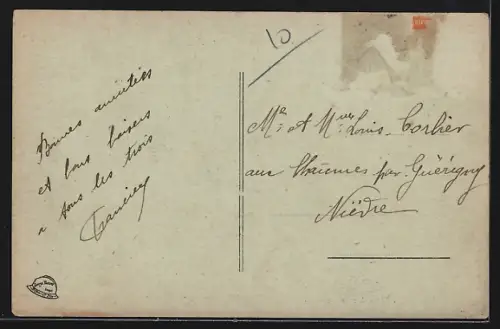 Bonnes amitiés
et bons baisers
a tous les trois
10
Mr et Mme Louis Corlier
aux Chaumes par Guérigny
Nièvre